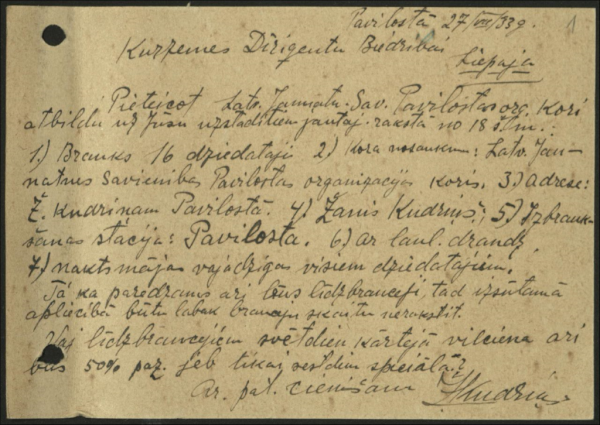 Pāvilostā 27/VII/33g. 1
Kurzemes Dirigentu Biedrībai
Liepaja
Pieteicot Latv. Jaunatn. Sav. Pāvilostas org. kori
atbildu uz Jūsu uzstadītiem jautaj. rakstā no 18 š.m.:
1.) Brauks 16 dziedataji 2) kora nosaukums: Latv. Jau-
natnes Savienības Pavilostas organizacijas koris. 3) Adrese:
Ž. Kudriņam Pavilostā. 4) Žanis Kudriņš; 5) Izbrauk-
šanas stacija: Pavilosta. 6) ar laul. draudz.
7) naktsmājas vajadzīgas visiem dziedatajiem.
Tā kā paredzams arī būs līdzbraucēji, tad izsūtamā
apliecībā būtu labak braucēju skaitu nerakstīt.
Vaj līdzbraucējiem svētdien kārtējā vilcienā arī
būs 50% paz. jeb tikaj sestdien speciālā?
Ar. pat. cienīšanu Ž Kudriņš.